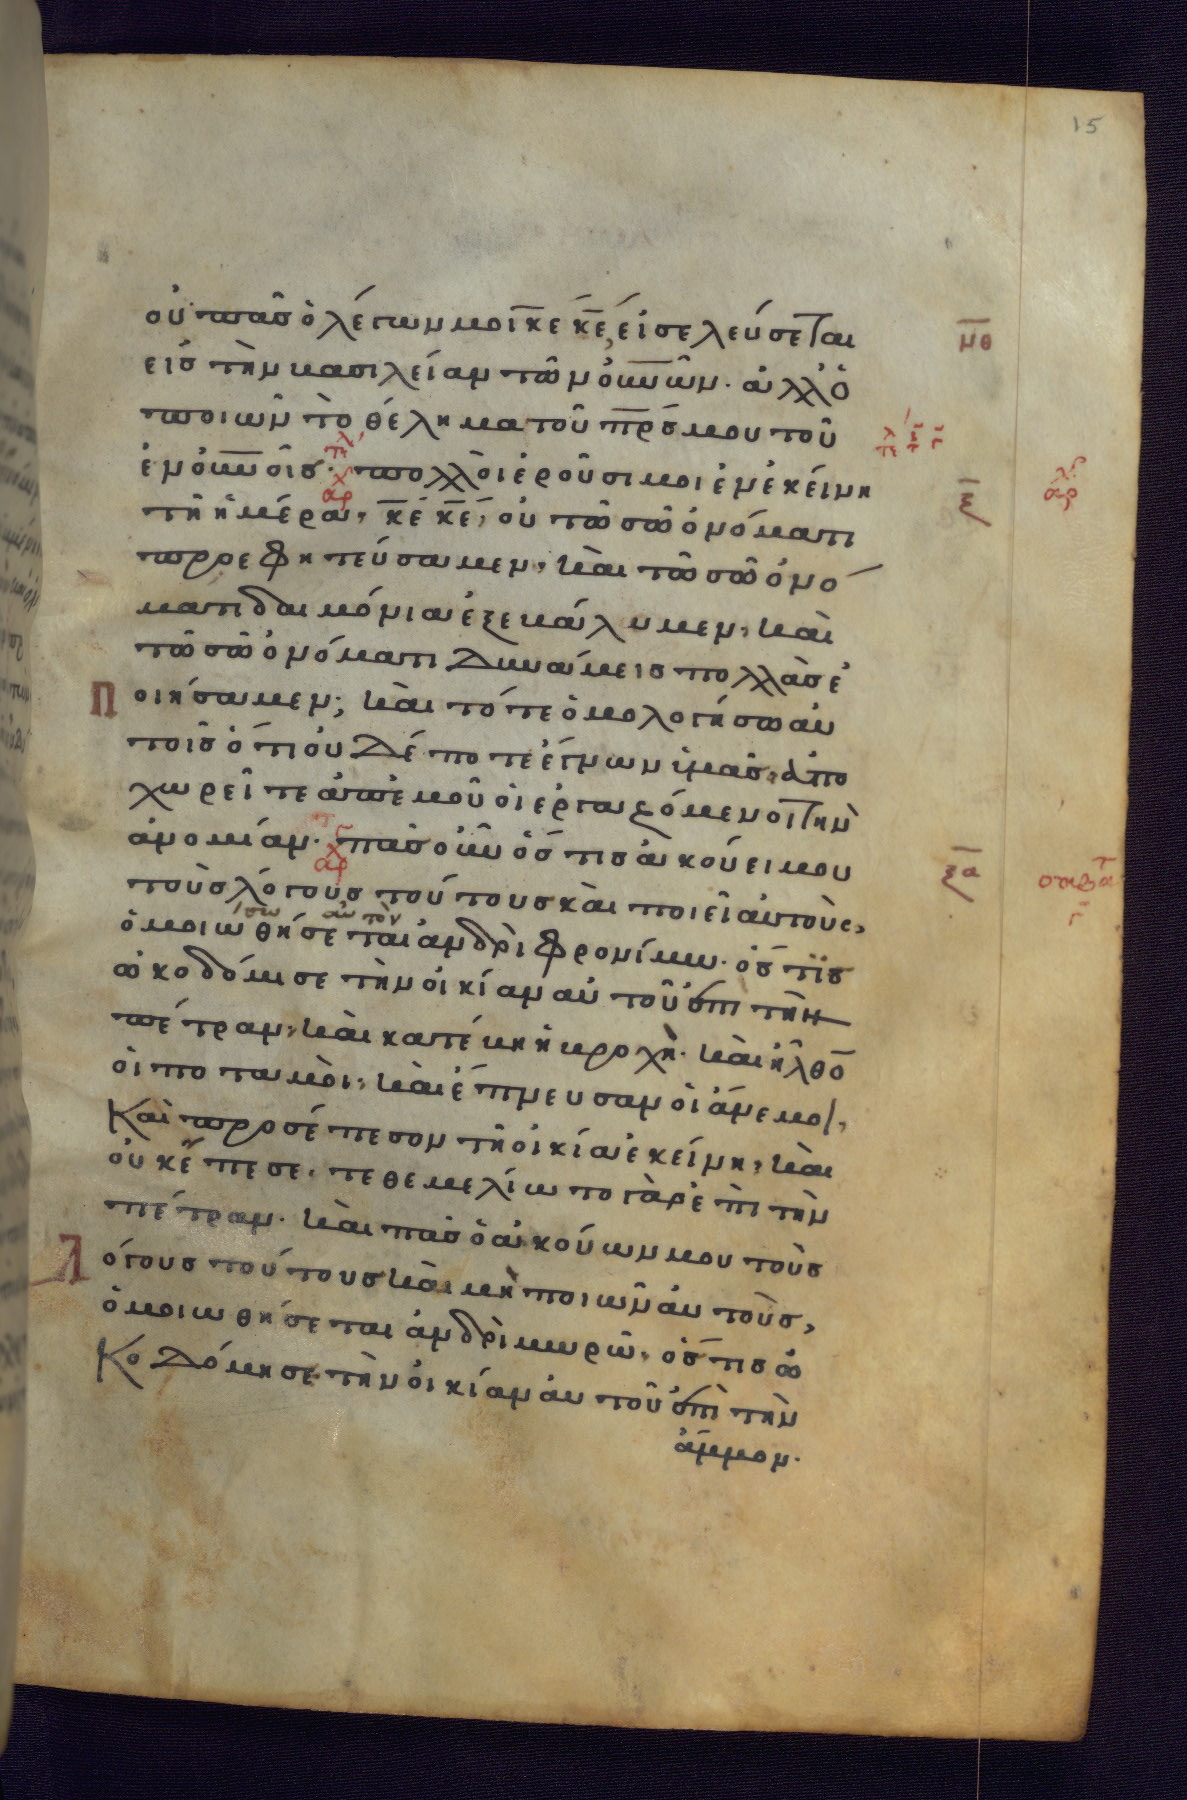 15
οὐ πᾶσ ὁ λέγων μοι κ̅ε κ̅ε, εἰσελεύσεται
εἰσ τὴν βασιλείαν τῶν ο̅υ̅νῶν. ἀλλ ὁ
ποιῶν τὸ θέλημα τοῦ π̅ρ̅σ μου τοῦ
ἐν ο̅υ̅νοῖσ. πολλοὶ ἐροῦσι μοι ἐν ἐκείνη
τῆ ἡμέρα, κ̅ε κ̅ε, οὐ τῶ σῶ ὀνόματι
προεφητεύσαμεν, καὶ τῶ σῶ ὀνό
ματι δαιμόνια ἐξεβάλομεν, καὶ
τῶ σῶ ὀνόματι δυνάμεισ πολλὰσ ἐ
ποιήσαμεν; καὶ τότε ὁμολογήσω αὐ
τοῖσ ὅτι οὐδέποτε ἔγνων ὑμᾶσ, ἀπο
χωρεῖτε ἀπ ἐμοῦ οἱ ἐργαζόμενοι τὴν
ἀνομίαν. πᾶσ οὖν ὅστισ ἀκούει μου
τοὺσ λόγουσ τούτουσ καὶ ποιεῖ αὐτοὺσ,
ὁμοιωθήσεται ἀνδρὶ φρονίμω. ὅστισ
ὠκοδόμισε τὴν οἰκίαν αὐτοῦ ἐπὶ τὴν
πέτραν, καὶ κατέβη ἡ βροχὴ. καὶ ἦλθο̅
οἱ ποταμοὶ, καὶ ἔπνευσαν οἱ ἄνεμοι,
Καὶ προσέπεσον τῆ οἰκία ἐκείνη, καὶ
οὐκ ἔπεσε. τεθεμελίωτο γὰρ ἐπὶ τὴν
πέτραν. καὶ πᾶσ ὁ ἀκούων μου τοὺσ
λόγουσ τούτουσ καὶ μὴ ποιῶν αὐτοὺσ,
ὁμοιωθήσεται ἀνδρὶ μωρῶ, ὅστισ ὠ
Κοδόμησε τὴν οἰκίαν αὐτοῦ ἐπὶ τὴν
ἄμμον.
ν̅θ̅
ξ̅
ξ̅α̅